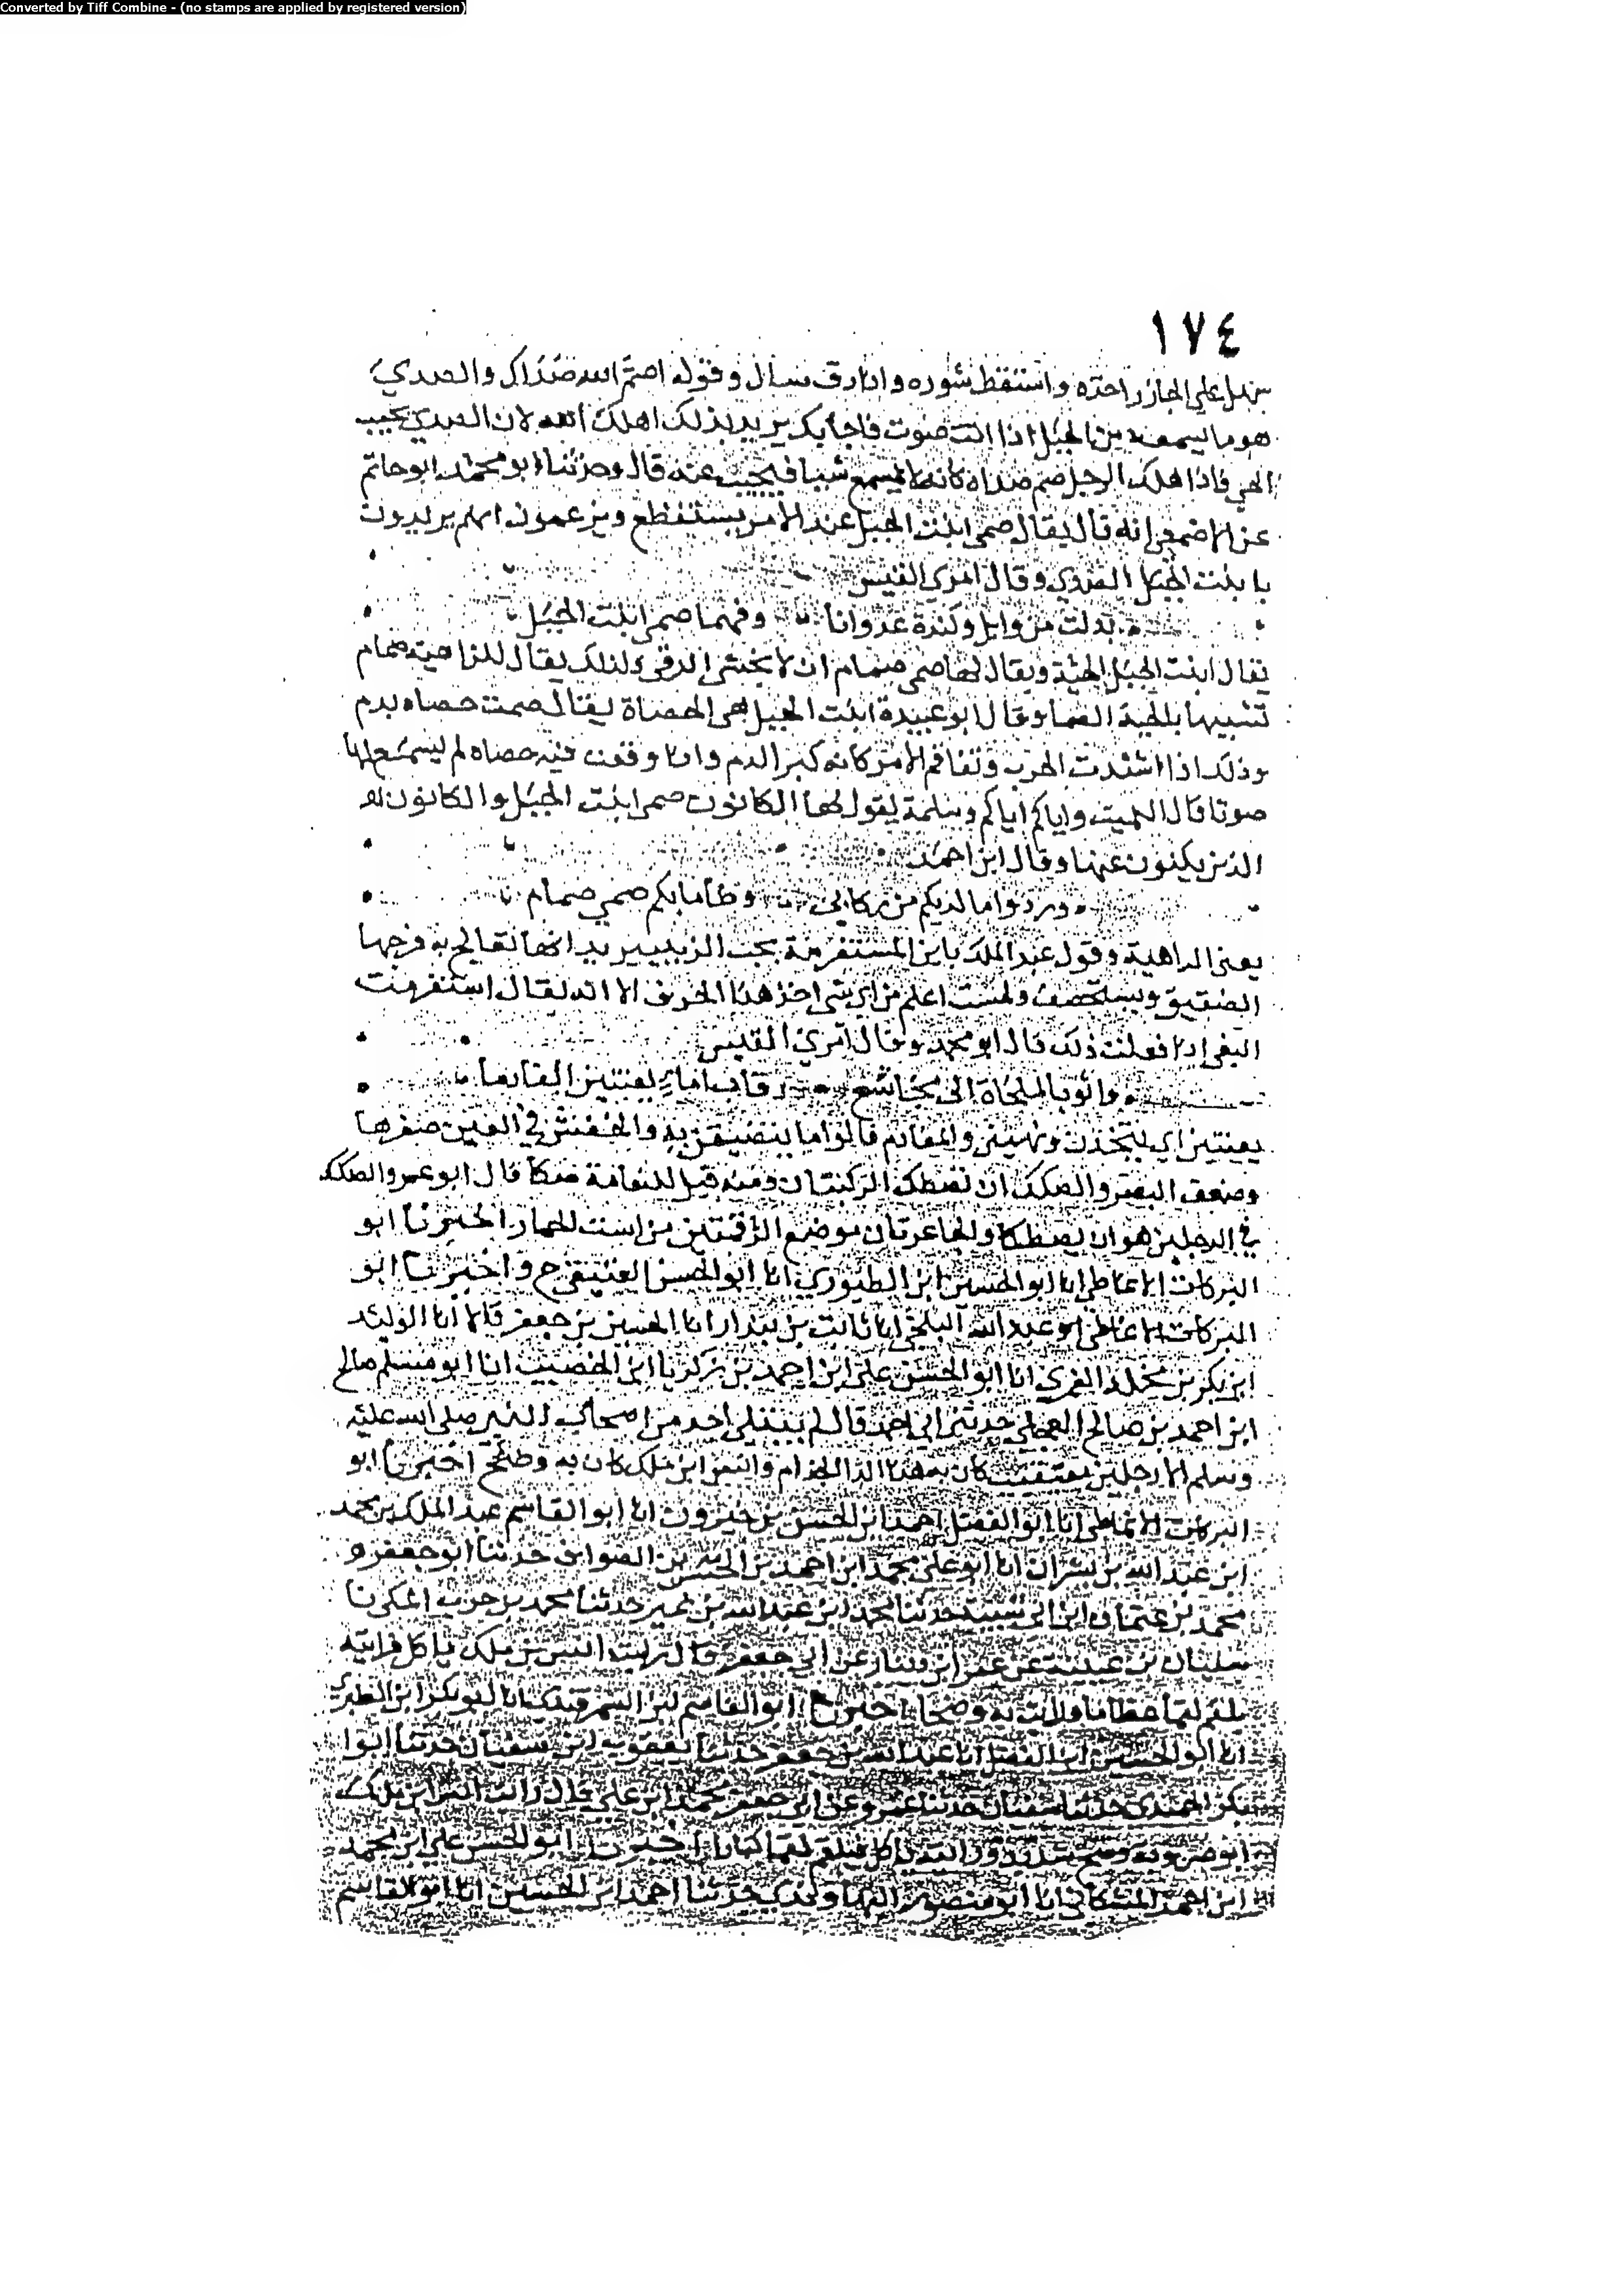 Converted by Tiff Combine - (no stamps are applied by registered version)
١٧٤
سهل على الجازر واستقط شوره واذا رق سال وقوله اصم الله صداك والصدي
هو ما يسمعه من الجبل اذا انت صوت فاجابك يريد بذلك اهلك الله لان الصدي يجيب
الحي فاذا هلك الرجل صم صداه كانه لا يسمع شيا فيجيب عنه قال وحدثنا ابو محمد ابو حاتم
عن الاصمعي انه قال يقال صمي ابنت الجبل عند الامر يستفظع ويزعمون انهم يريدون
بابنت الجبل الصدي وقال امري القيس
بدلت من وايل وكندة عدوانا وفهما صمي ابنت الجبل
يقال ابنت الجبل الحية ويقال لها صمي صمام ان لا تجيبي الرقي ولذلك يقال للداهية صمام
تشبيها بالحية الصما وقال ابو عبيدة ابنت الجبل هي الحصاة يقال صمت حصاه بدم
وذلك اذا اشتدت الحرب وتفاقم الامر كانه كثر الدم واذا وقعت فيه حصاه لم يسمع لها
صوتا قال الكميت واياكم اياكم وملمة يقول لها الكانون صمي ابنت الجبل والكانون
الذين يكنون عنها وقال ابن احمد
وردوا ما لديكم من ركابي صمي صمام
يعني الداهية وقول عبد الملك يابن المستفرمة بعجب الزبيب يريد انها تعالج به فرجها
الضيق ويستحصف ولست اعلم من اي شي اخذ هذا الحرف الا انه يقال استفرمت
البغي اذا فعلت ذلك قال ابو محمد وقال امري القيس
الى مجاشع رقاب اماء يعتنين المفارما
يعتنين اي يتخذن والمفارم قالوا ما يتضيقن به والخفش في العين صغرها
وضعف البصر والصكك ان تصطك الركبتان ومنه قيل للنعامة صكا قال ابو عمر والصكك
في الرجلين هو ان يصطكا والجاعرتان موضع الرقمتين من است الحمار اخبرنا ابو
البركات الانماطي انا ابو الحسين ابن الطيوري انا ابو الحسن العتيقي ح واخبرنا ابو
البركات الانماطي ابو عبد الله البلخي انا ثابت بن بندار انا الحسين بن جعفر قالا انا الوليد
ابن بكر بن مخلد الغمري انا ابو الحسن علي ابن احمد بن زكريا ابن الخصيب انا ابو مسلم صالح
ابن احمد بن صالح العجلي حدثني ابي احمد قال لم يبتلى احد من اصحاب النبي صلى الله عليه
وسلم الا رجلين معيقيب كان به هذا الدا الجذام وانس ابن ملك كان به وضح اخبرنا ابو
البركات الانماطي انا ابو الفضل احمد ابن الحسن بن خيرون انا ابو القاسم عبد الملك بن محمد
ابن عبد الله بن بشران انا ابو علي محمد ابن احمد بن الحسن بن الصواف حدثنا ابو جعفر
محمد بن عثمان ابن ابي شيبة حدثنا محمد ابن عبد الله بن نمير حدثنا محمد بن حرب المكي نا
سفيان بن عيينة عن عمر ابن دينار عن ابي جعفر قال رايت انس بن ملك ياكل فرايته
يلقم لقما عظاما ورايت به وضحا اخبرنا ابو القاسم ابن السمرقندي انا ابو بكر ابن الطبري
انا ابو الحسين ابن الفضل انا عبد الله بن جعفر حدثنا يعقوب ابن سفيان حدثنا ابوا
بكر الحميدي حدثنا سفيان حدثنا عمرو عن ابي جعفر محمد ابن علي قال رايت انس ابن ملك
وضح شديد ورايته ياكل فيلقم لقما كبارا اخبرنا ابو الحسن علي ابن محمد
ابن احمد المشكاني انا ابو منصور النهاوندي حدثنا احمد ابن الحسين انا ابو القاسم